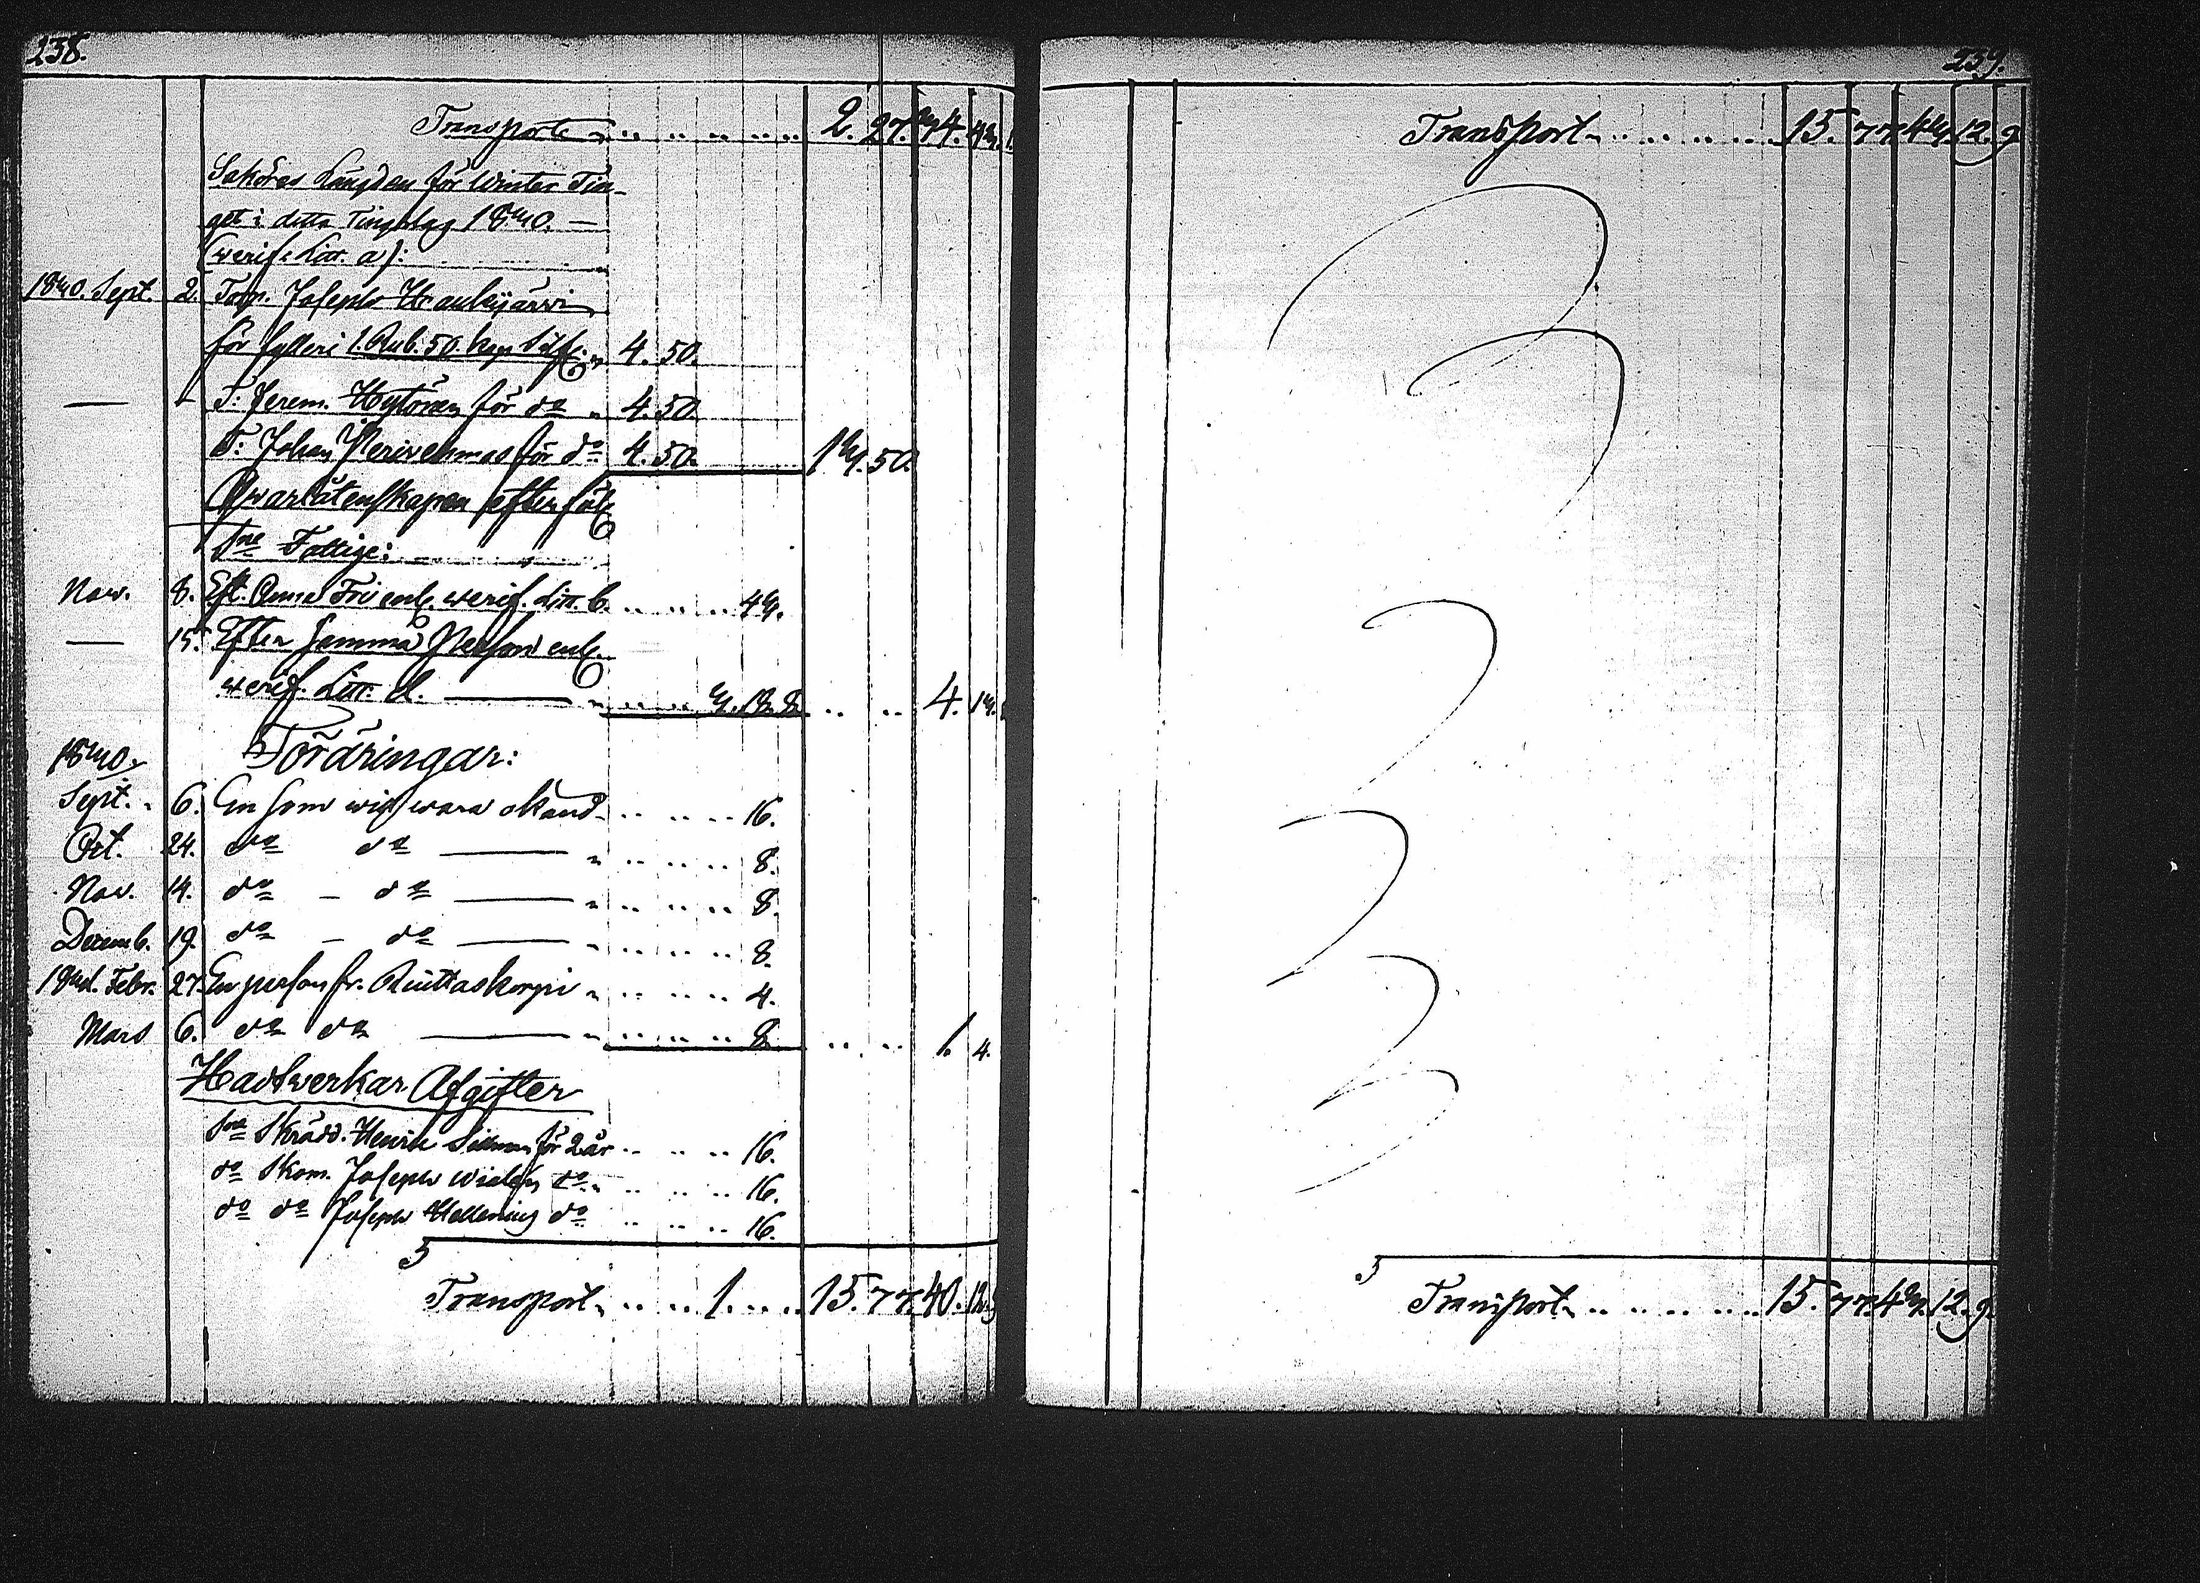 238.
Transport 2. 27. 44. 44.
Saköres Längden för Winter Tin-
get i detta Tingslag 1840. —
(werif. Litt. a):
1840. Sept. 2. Torp. Joseph Haukijärwi
för fylleri 1. Rub. 50. kop. Silfr. 4. 50.
— T. Jerem. Hytönen för do 4. 50.
T. Johan för do 4. 50. 14. 50.
Qwarlåtenskapen efter föl.
Fattige:
Nov. 8. Eft. Anna enl. werif. Litt. b. 44.
— 15. Efter enl.
werif. Litt. 4. 18. 8. 4. 14.
1840. Föräringar:
Sept. 6. En som will wara okänd 16.
Oct. 24. do do — 8.
Nov. 14. do – do — 8.
Decemb. 19. do – do — 8.
1841. Febr. 27. En person fr. Ruuttaskorpi 4.
Mars 6. do do — 8. 1. 4.
Hadtwerkar Afgifter
Skrädd. Henrik för 2 år 16.
do Skom. Joseph do 16.
do do Joseph do 16.
Transport 1. 15. 77. 40. 12. 9
239.
Transport 15. 77. 44. 12. 9
Transport 15. 77. 44. 12. 9.